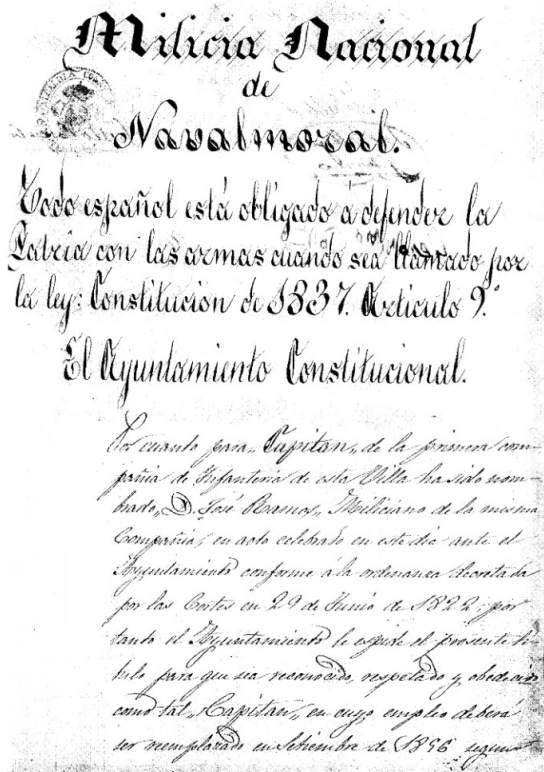 Milicia Nacional
de
Navalmoral.
Todo español está obligado a defender la
Patria con las armas cuando sea llamado por
la ley: Constitucion de 1837. Articulo 9.º
El Ayuntamiento Constitucional.
Por cuanto para „Capitan„ de la primera com-
pañia de Infanteria de esta Villa ha sido nom-
brado„ D. José Ramos„ Miliciano de la misma
Compañia, en acto celebrado en este dia ante el
Ayuntamiento conforme á la ordenanza decretada
por las Cortes en 29 de Junio de 1822; por
tanto el Ayuntamiento le espide el presente tí-
tulo para que sea reconocido, respetado y obedecido
como tal „Capitan„ en cuyo empleo deberá
ser reemplazado en Setiembre de 1856 segun